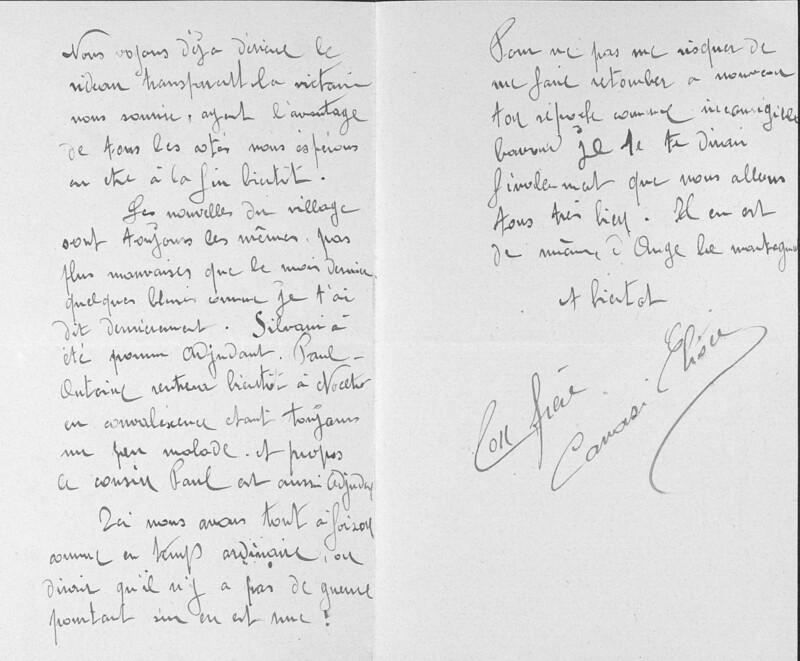 Nous voyons déja dérière le
rideau transparatt la victoire
nous sourire, ayant l'avantage
de tous les cotés nous éspérons
en etre à la fin bientôt.
Les nouvelles du village
sont toujours les mêmes, pas
plus mauvaises que le mois dernier
quelques blessés comme je t'ai
dit dernièrement. Silvani à
été promu adjudant. Paul-
Antoine rentrera bientôt à Noceta
en convalésence étant toujours
un peu malade. A propos
le cousin Paul est aussi adjudant
Ici nous avons tout à foison
comme en temps ordinaire, on
dirait qu'il n'y a pas de guerre
pourtant s'en est une !
Pour ne pas me risquer de
me faire retomber a nouveau
ton réproche comme incorrigible
bavard je te dirai
finalement que nous allons
tous très bien. Il en est
de même d'Ange le montagnard
A bientot
Ton frère